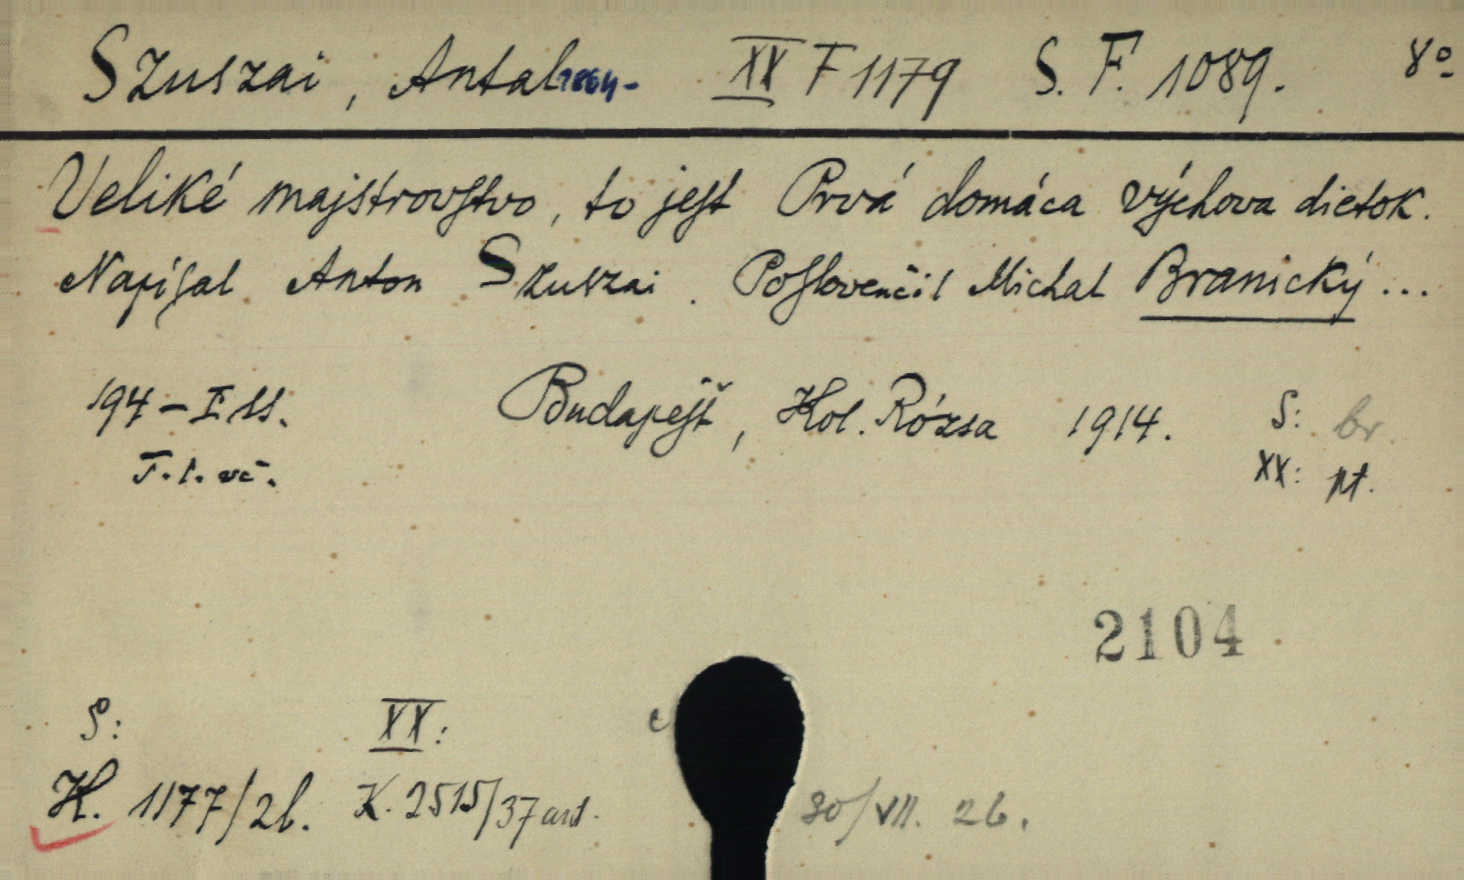 Szuszai, Antal 1864- XX F 1179 S. F. 1089. 8º
Veliké majstrovſtvo, to jeſt Prvá domáca výchova dietok.
Napíſal Anton Szuszai. Poſlovenčil Michal Branický...
194 – I ss. Budapešť, Kol. Rózsa 1914. S: br.
F. l. vč. XX: pt.
2104
S: XX: c
H. 1177/26. K. 2515/37 ant. 30/VII. 26.